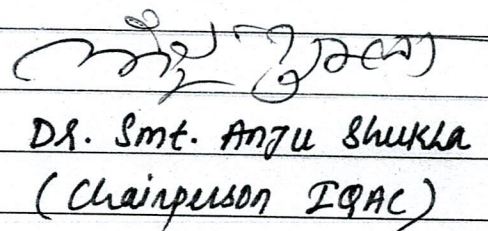 Dr. Smt. Anju Shukla
(Chairperson IQAC)